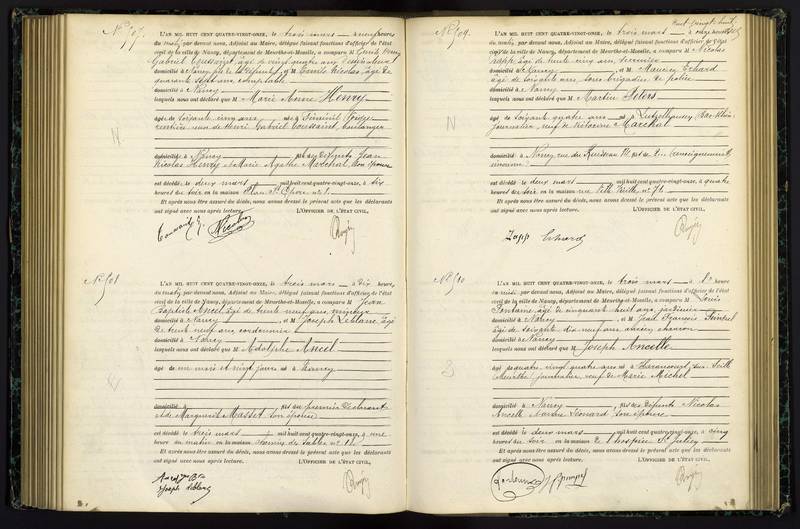 N° 507.
L'AN MIL HUIT CENT QUATRE-VINGT-ONZE, le trois mars à neuf heures
du matin par devant nous, Adjoint au Maire, délégué faisant fonctions d'officier de l'état
civil de la ville de Nancy, département de Meurthe-et-Moselle, a comparu M
Gabriel Toussaint, âgé de vingt quatre ans
domicilié à Nancy fils de la défunte, et M Emile Nicolas, âgé de
quarante sept ans, comptable
domicilié à Nancy
lesquels nous ont déclaré que M Marie Anne Henry
âgée de soixante cinq ans, née à
rentière, veuve de Henri Gabriel Toussaint, boulanger
domiciliée à Nancy fille des défunts Jean
Nicolas Henry et Marie Agathe Marchal, son épouse
est décédée le deux mars mil huit cent quatre-vingt-onze, à dix
heures du soir en la maison Place St Epvre n° 1.
Et après nous être assuré du décès, nous avons dressé le présent acte que les déclarants
ont signé avec nous après lecture. L'OFFICIER DE L'ÉTAT CIVIL,
N° 508
L'AN MIL HUIT CENT QUATRE-VINGT-ONZE, le trois mars à dix heures
du matin par devant nous, Adjoint au Maire, délégué faisant fonctions d'officier de l'état
civil de la ville de Nancy, département de Meurthe-et-Moselle, a comparu M Jean
Baptiste Ancel, âgé de trente neuf ans, mineur
domicilié à Nancy et M Joseph Leblanc, âgé
de trente neuf ans, cordonnier
domicilié à Nancy
lesquels nous ont déclaré que M Adolphe Ancel
âgé de un mois et vingt jours né à Nancy
domicilié à fils du premier déclarant
et de Marguerite Masset son épouse
est décédé le trois mars mil huit cent quatre-vingt-onze, à une
heure du matin en la maison Avenue des Sables n° 11
Et après nous être assuré du décès, nous avons dressé le présent acte que les déclarants
ont signé avec nous après lecture. L'OFFICIER DE L'ÉTAT CIVIL,
Joseph Leblanc
N° 509.
L'AN MIL HUIT CENT QUATRE-VINGT-ONZE, le trois mars à onze heures
du matin par devant nous, Adjoint au Maire, délégué faisant fonctions d'officier de l'état
civil de la ville de Nancy, département de Meurthe-et-Moselle, a comparu M Nicolas
Zapp, âgé de trente cinq ans,
domicilié à Nancy et M Maurice Erhard
âgé de soixante ans, sous brigadier de police
domicilié à Nancy
lesquels nous ont déclaré que M Martin Peters
âgé de soixante quatre ans né à Lutzelhausen, Bas-Rhin,
journalier, veuf de Victorine Marchal
domicilié à Nancy rue du Ruisseau fils de
est décédé le deux mars mil huit cent quatre-vingt-onze, à quatre
heures du soir en la maison rue n° 76
Et après nous être assuré du décès, nous avons dressé le présent acte que les déclarants
ont signé avec nous après lecture. L'OFFICIER DE L'ÉTAT CIVIL,
Zapp Erhard
N° 510
L'AN MIL HUIT CENT QUATRE-VINGT-ONZE, le trois mars à heure
du midi, par devant nous, Adjoint au Maire, délégué faisant fonctions d'officier de l'état
civil de la ville de Nancy, département de Meurthe-et-Moselle, a comparu M Louis
âgé de cinquante huit ans, jardinier
domicilié à Nancy et M Jean François
âgé de soixante dix neuf ans ancien charron
domicilié à Nancy
lesquels nous ont déclaré que M Joseph Ancelle
âgé quatre vingt quatre ans né à Haraucourt sur Seille
Meurthe, journalier, veuf de Marie Michel
domicilié à Nancy fils des défunts Nicolas
Ancelle son épouse
est décédé le deux mars mil huit cent quatre-vingt-onze, à cinq
heures du soir en la maison l'hospice St Julien
Et après nous être assuré du décès, nous avons dressé le présent acte que les déclarants
ont signé avec nous après lecture. L'OFFICIER DE L'ÉTAT CIVIL,